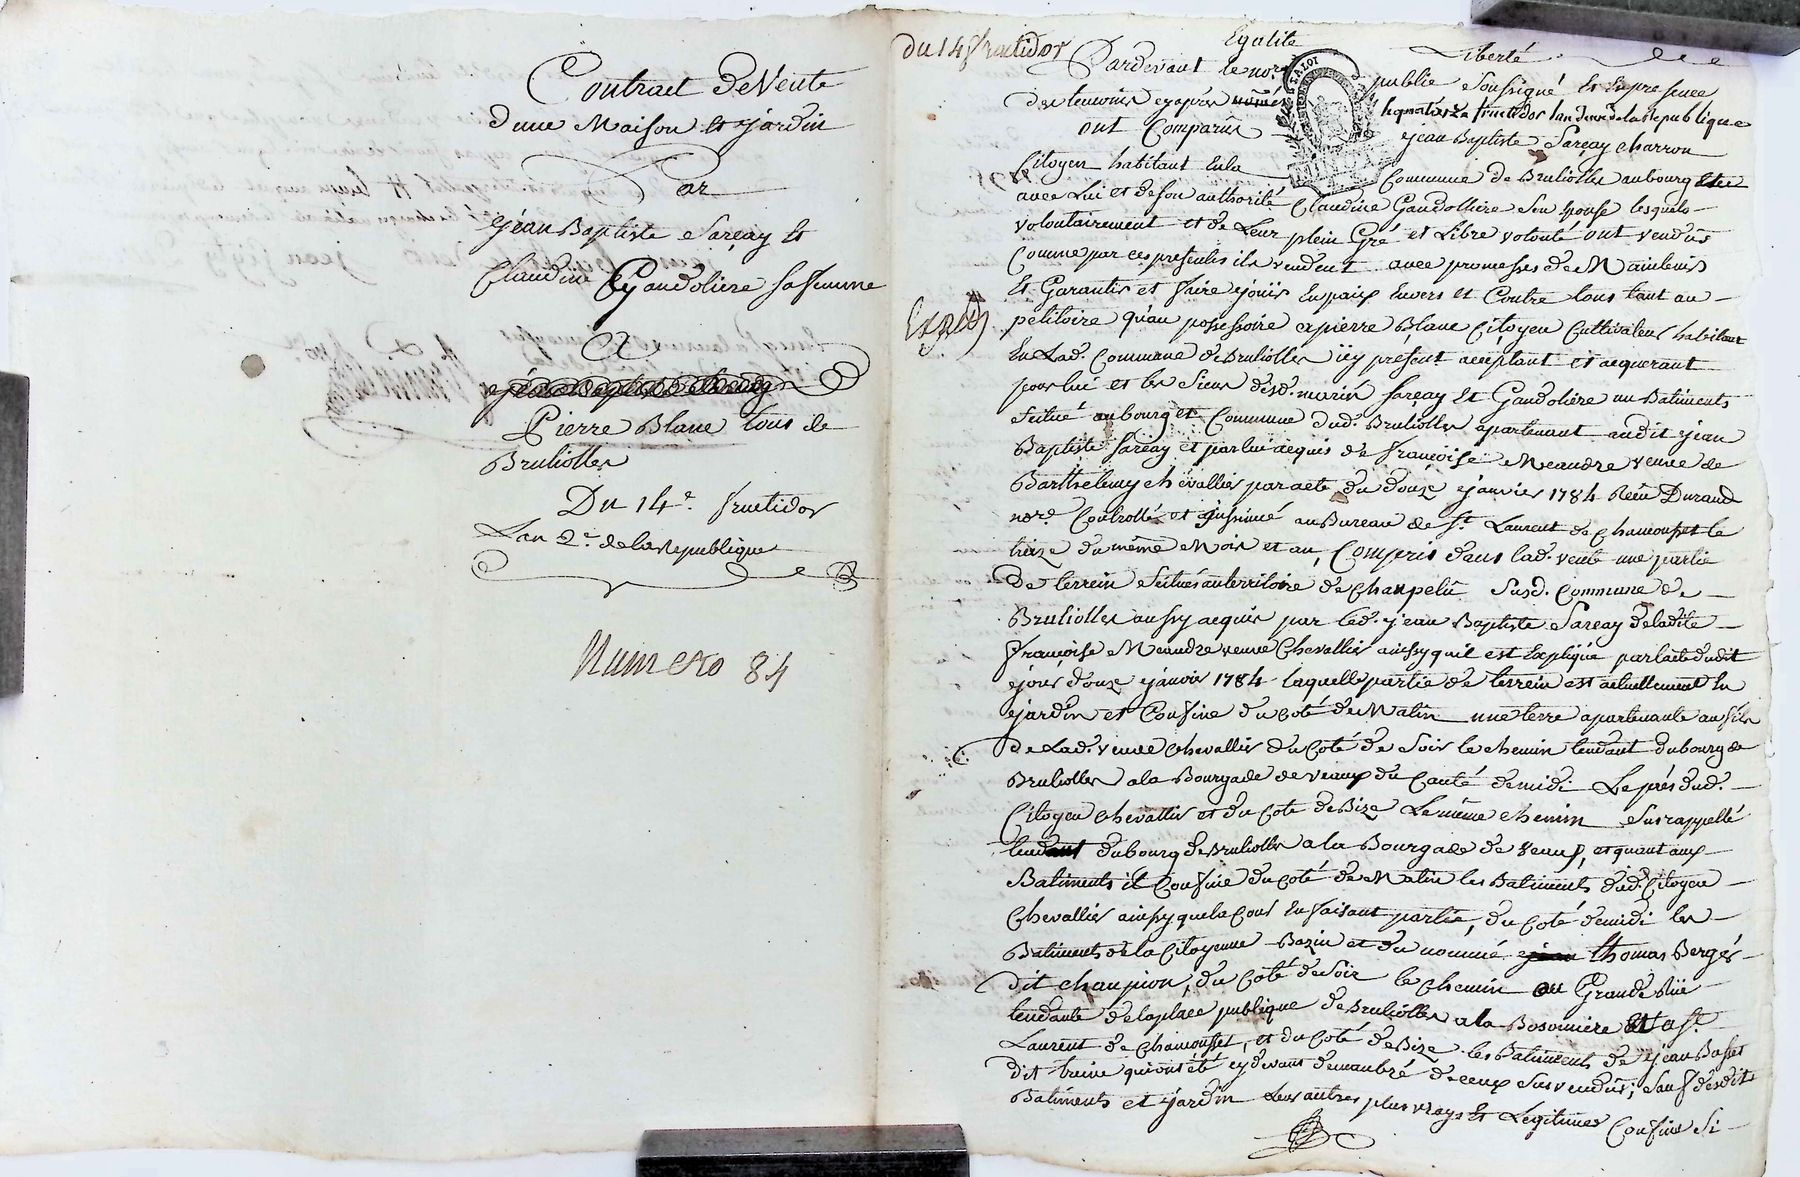 Contract De Vente
dune Maison et jardin
Par
Jean Baptiste Sarçay Et
Claudine Gandoliere sa femme
A
Pierre Blanc tous de
Brulioller
Du 14e fructidor
Lan 2e de la Republique
Numero 84
du 14 fructidor
Egalité Liberté
Pardevant le nore publie Soussigné Et En presence
des temoins cy après només le quatorze fructidor lan deux de la Republique
ont Comparûs jean Baptiste Sarçay charron
Citoyen habitant En la Commune de Brulioller au bourg
avec Lui et de son authorité Claudine Gandolliere Son Epouse lesquels
volontairement et de Leur plein Gré et Libre volonté ont vendûs
Comme par ces presentes ils vendent avec promesses de Maintenir
Et Garantir et faire jouir En paix Envers et Contre tous tant au
petitoire qu'au possessoire a pierre Blanc Citoyen Cultivateur habitant
Expedié
En Lad. Commune de Brulioller ïcy présent acceptant et acquerant
pour lui et les Siens desd. mariés Sarçay Et Gandoliére un Batiments
Scitué au bourg et Commune dud. Brulioller apartenant audit jean
Baptiste Sarçay et par lui acquis de françoise Meandre veuve de
Barthelemy chevallier par acte du douze janvier 1784 Reçu Durand
nore Controllé et insinué au Bureau de St. Laurent de Chamousset le
treize du même Mois et an, Compris dans lad. vente une partie
De terrein Scitués au territoire de Champelû Susd. Commune de
Brulioller aussy acquis par led. jean Baptiste Sarçay de ladite
françoise Meandre veuve Chevallier ainsy quil est Expliqué par lacte dudit
jour douze janvier 1784 laquelle partie de terrein est actuellement En
jardin et Confine du Coté de Matin une terre apartenante au fils
de Lad. veuve Chevallier du Coté de Soir le chemin tendant du bourg de
Brulioller a la Bourgade de veaux du Cauté de midi Le prés dud.
Citoyen Chevallier et du Coté de Bize Le même chemin Susrappellé
tendant du bourg de Brulioller a la Bourgade de veaux, et quant aux
Batiments il Confine du Coté de Matin les Batiments dud. Citoyen
Chevallier ainsy que la Cour En faisant partie, du Coté de midi les
Batiments de la Citoyenne Bazin et du nommé jean thomas Berger
dit champion, du Coté de Soir le Chemin ou Grande Rüe
tendante de la place publique de Brulioller a la Et a St.
Laurent de Chamousset, et du Coté de Bize les Batiments de jean Basset
dit qui ont été cy devant demanbré de ceux Sus vendûs; Sauf desdits
Batiments et jardin Leurs autres plus vrays Et Legitimes Confins Si